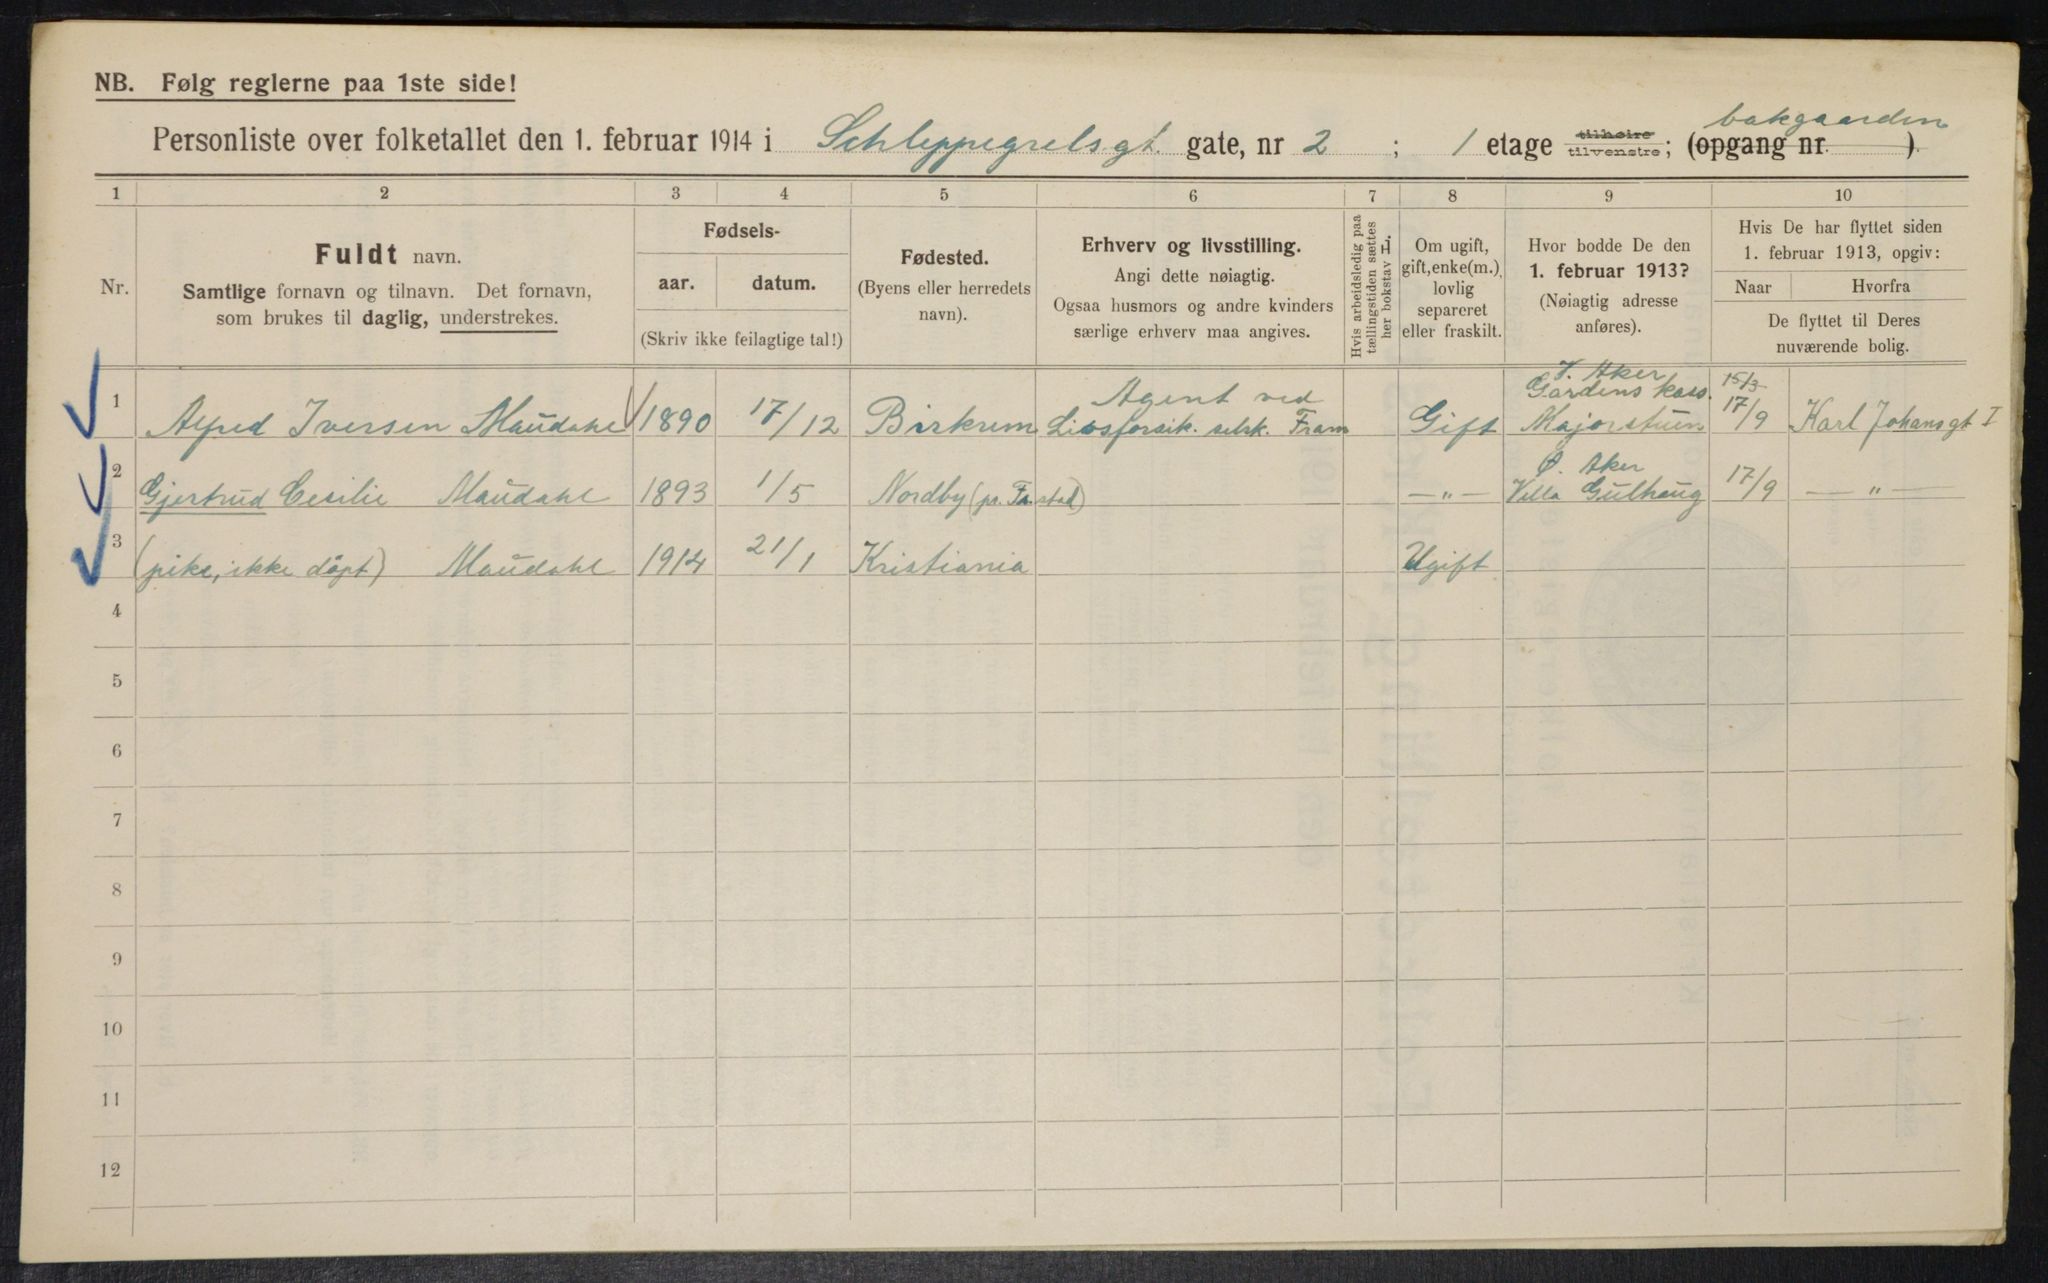 NB. Følg reglerne paa 1ste side!
bakgaarden
Personliste over folketallet den 1. februar 1914 i Schleppegrelsgt. gate, nr 2 ; 1 etage tilhøire tilvenstre; (opgang nr. ).
1 2 3 4 5 6 7 8 9 10
Nr.
Fuldt navn.
Samtlige fornavn og tilnavn. Det fornavn,
som brukes til daglig, understrekes.
Fødsels-
aar. datum.
(Skriv ikke feilagtige tal!)
Fødested.
(Byens eller herredets
navn).
Erhverv og livsstilling.
Angi dette nøiagtig.
Ogsaa husmors og andre kvinders
særlige erhverv maa angives.
Hvis arbeidsledig paa
tællingstiden sættes
her bokstav L.
Om ugift,
gift, enke(m.),
lovlig
separeret
eller fraskilt.
Hvor bodde De den
1. februar 1913?
(Nøiagtig adresse
anføres).
Hvis De har flyttet siden
1. februar 1913, opgiv:
Naar Hvorfra
De flyttet til Deres
nuværende bolig.
V. Aker
Agent ved Gardens kas. 15/3
1 Alfred Iversen Maudahl 1890 17/12 Birkrem Livsforsik. selsk. Fram Gift Majorstuen 17/9 Karl Johansgt I
Ø. Aker
2 Gjertrud Cesilie Maudahl 1893 1/5 Nordby (pr. Fr.stad) — „ — Villa Gulhaug 17/9 — „ —
3 (pike, ikke döpt) Maudahl 1914 21/1 Kristiania Ugift
4
5
6
7
8
9
10
11
12